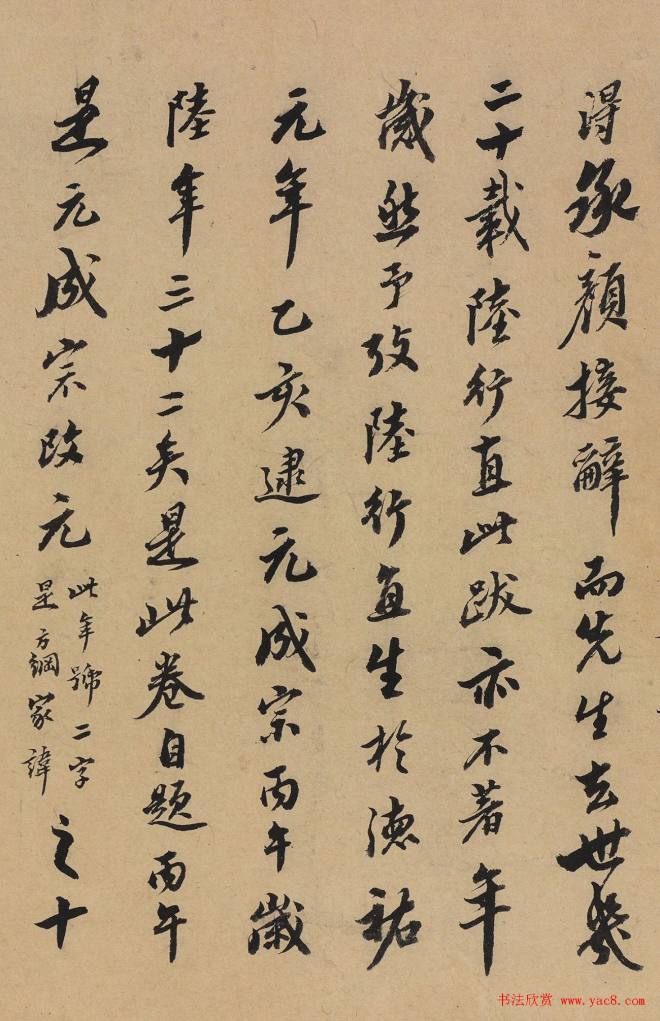 得承顏接辭而先生去世幾
二十載陸行直此跋亦不著年
歲然予攷陸行直生於德祐
元年乙亥逮元成宗丙午歲
陸年三十二矣是此卷自題丙午
是元成宗改元此年號二字
是方綱家諱之十
书法欣赏 www.yac8.com